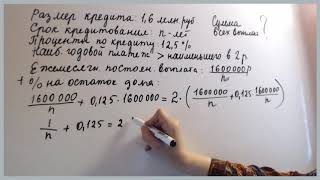 Размер кредита: 1,6 млн руб
Сумма всех выплат ?
Срок кредитования: n-лет
Проценты по кредиту: 12,5 %
Наиб. годовой платеж > наименьшего в 2 р
Ежемесячн постоен выплата: 1600000р/n
+ % на остаток долга:
1600 000/n + 0,125 · 1600000 = 2 · (1600 000/n + 0,125 · 1600000/n)
1/n + 0,125 = 2